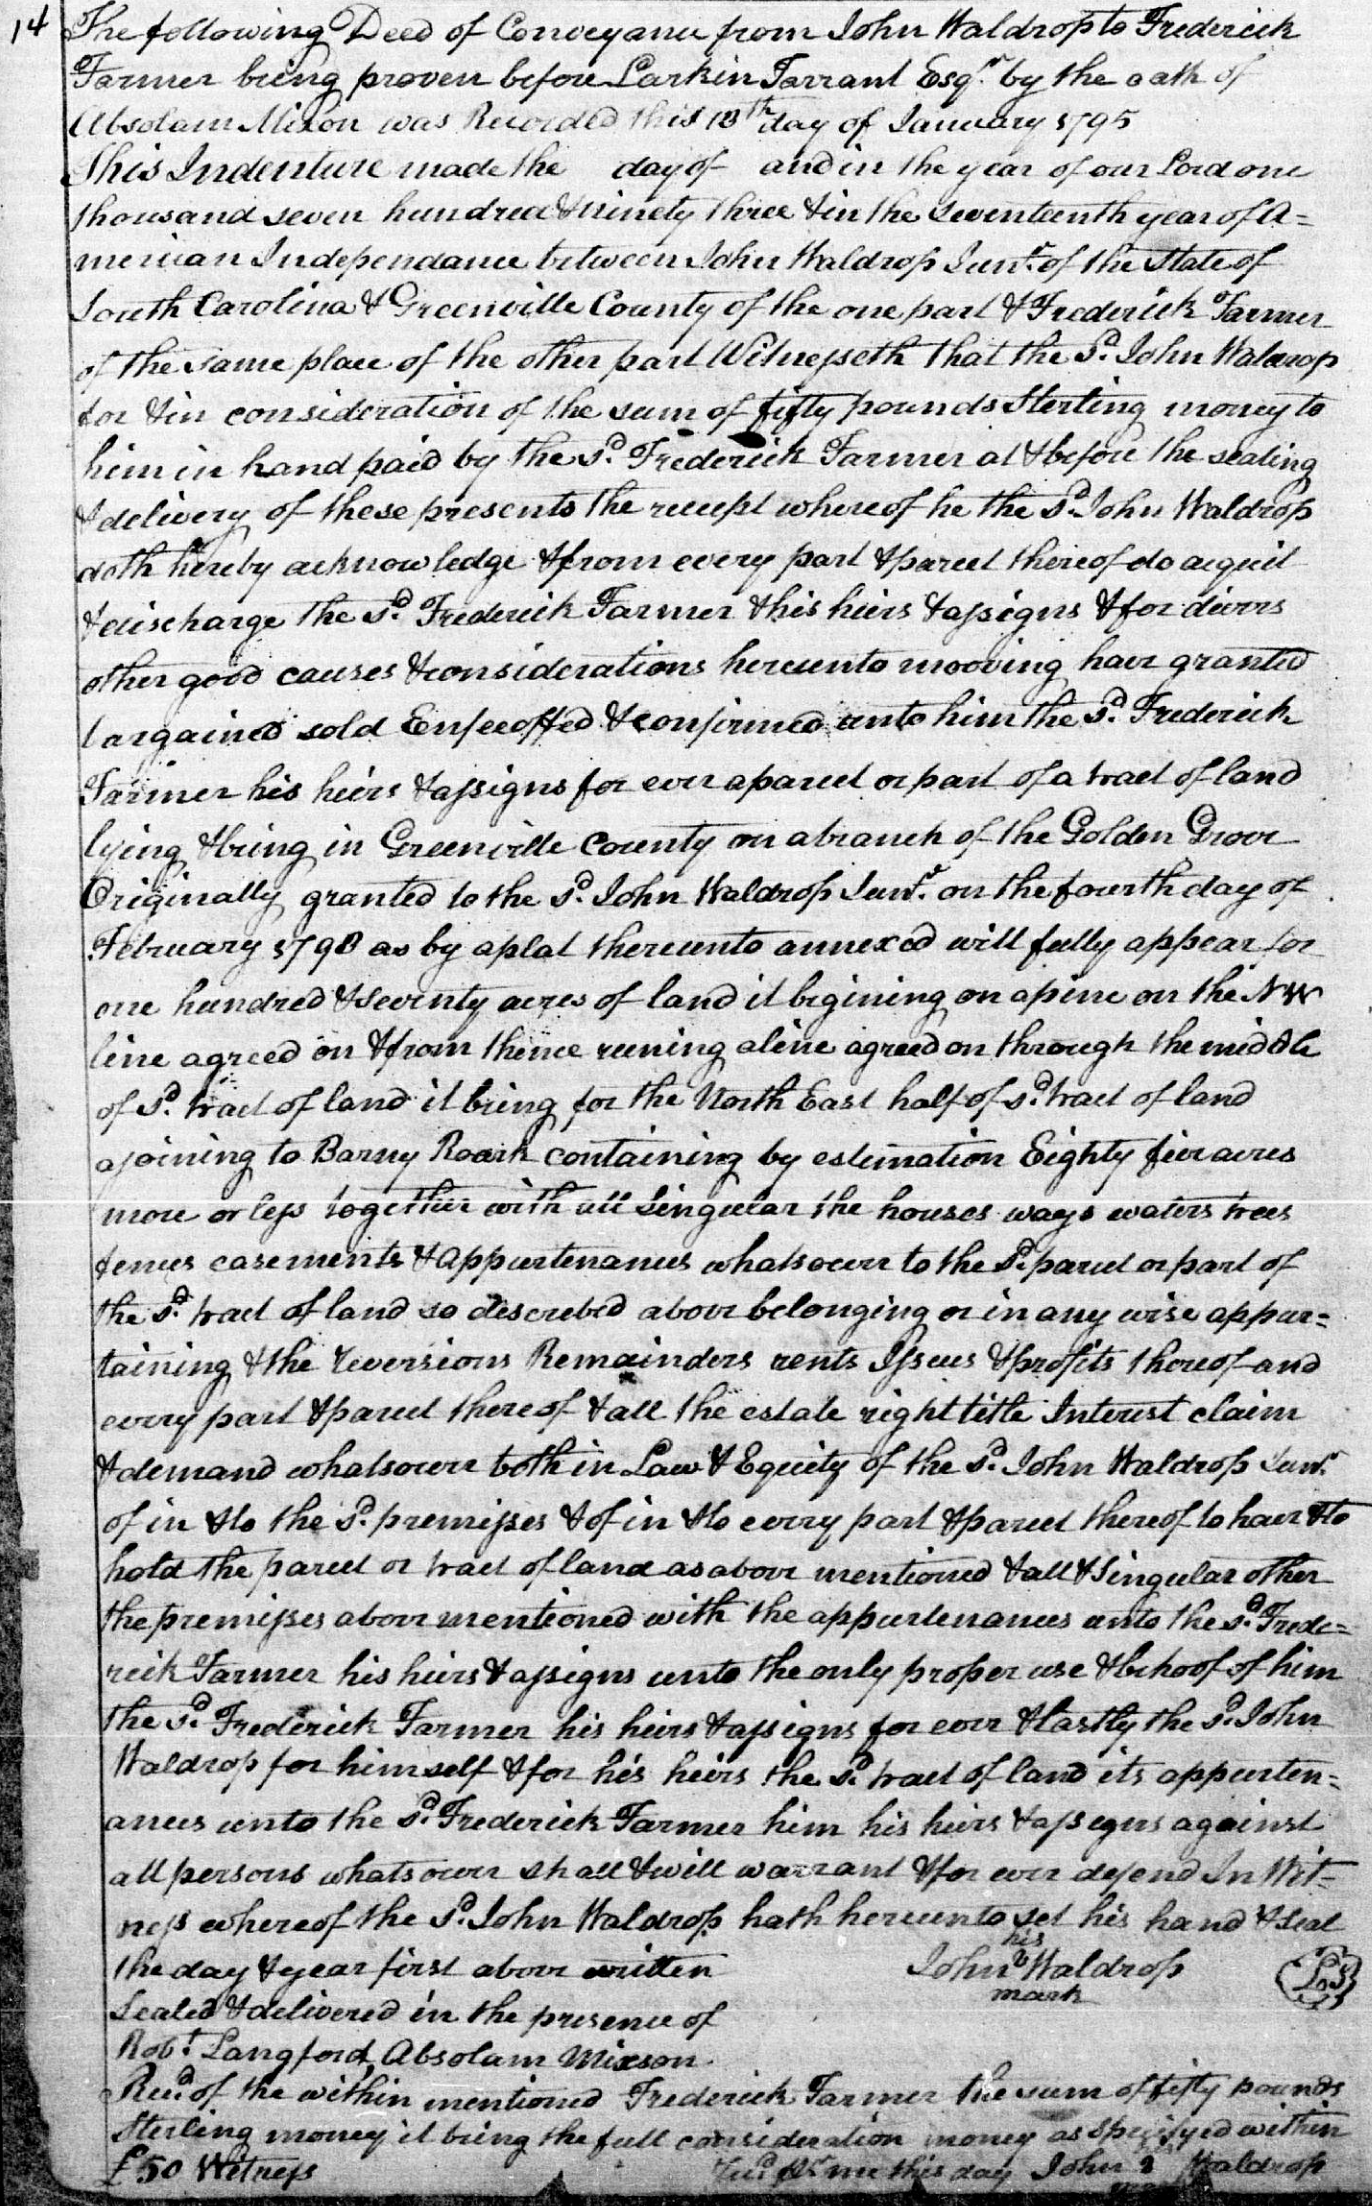 14
The following Deed of Conveyance from John Waldrop to Frederick
Farmer being proven before Larkin Tarrant Esqr. by the oath of
Absolam Mixon was Recorded this 18th day of January 1795
This Indenture made the day of and in the year of our Lord one
thousand seven hundred & ninety three & in the seventeenth year of A=
merican Independance between John Waldrop Junr. of the State of
South Carolina & Greenville County of the one part & Frederick Farmer
of the same place of the other part Witnesseth that the Sd. John Waldrop
for & in consideration of the sum of fifty pounds Sterling money to
him in hand paid by the sd. Frederick Farmer at & before the sealing
& delivery of these presents the receipt whereof he the sd. John Waldrop
doth hereby acknowledge & from every part & parcel thereof do acquit
& discharge the sd. Frederick Farmer & his heirs & assigns & for divers
other good causes & considerations hereunto mooving have granted
bargained sold Enfeoffed & confirmed unto him the sd. Frederick
Farmer his heirs & assigns for ever a parcel or part of a tract of land
lying & being in Greenville County on a branch of the Golden Grove
Originally granted to the sd. John Waldrop Junr. on the fourth day of
February 1793 as by a plat thereunto annexed will fully appear for
one hundred & seventy acres of land it begining on a pine on the NW
line agreed on & from thence runing a line agreed on through the middle
of sd. tract of land it being for the North East half of sd. tract of land
ajoining to Barny Roark containing by estimation Eighty five acres
more or less together with all Singular the houses ways waters trees
fences easements & appurtenances whatsoever to the sd. parcel or part of
the sd. tract of land so described above belonging or in any wise appur=
taining & the reversions Remainders rents Issues & profits thereof and
every part & parcel thereof & all the estate right title Interest claim
& demand whatsoever both in Law & Equity of the sd. John Waldrop Junr.
of in & to the sd. premisses & of in & to every part & parcel thereof to have & to
hold the parcel or tract of land as above mentioned & all & Singular other
the premisses above mentioned with the appurtenances unto the sd. Frede=
rick Farmer his heirs & assigns unto the only proper use & behoof of him
the sd. Frederick Farmer his heirs & assigns for ever & Lastly the sd. John
Waldrop for himself & for his heirs the sd. tract of land its appurten=
ances unto the sd. Frederick Farmer him his heirs & assigns against
all persons whatsoever shall & will warrant & for ever defend In Wit=
ness whereof the sd. John Waldrop hath hereunto set his hand & seal
the day & year first above written John his Waldrop mark LS
Sealed & delivered in the presence of
Robt. Langford Absolam Mixson
Recd. of the within mentioned Frederick Farmer the sum of fifty pounds
Sterling money it being the full consideration money as specifyed within
£50 Witness Recd. pr me this day John Waldrop